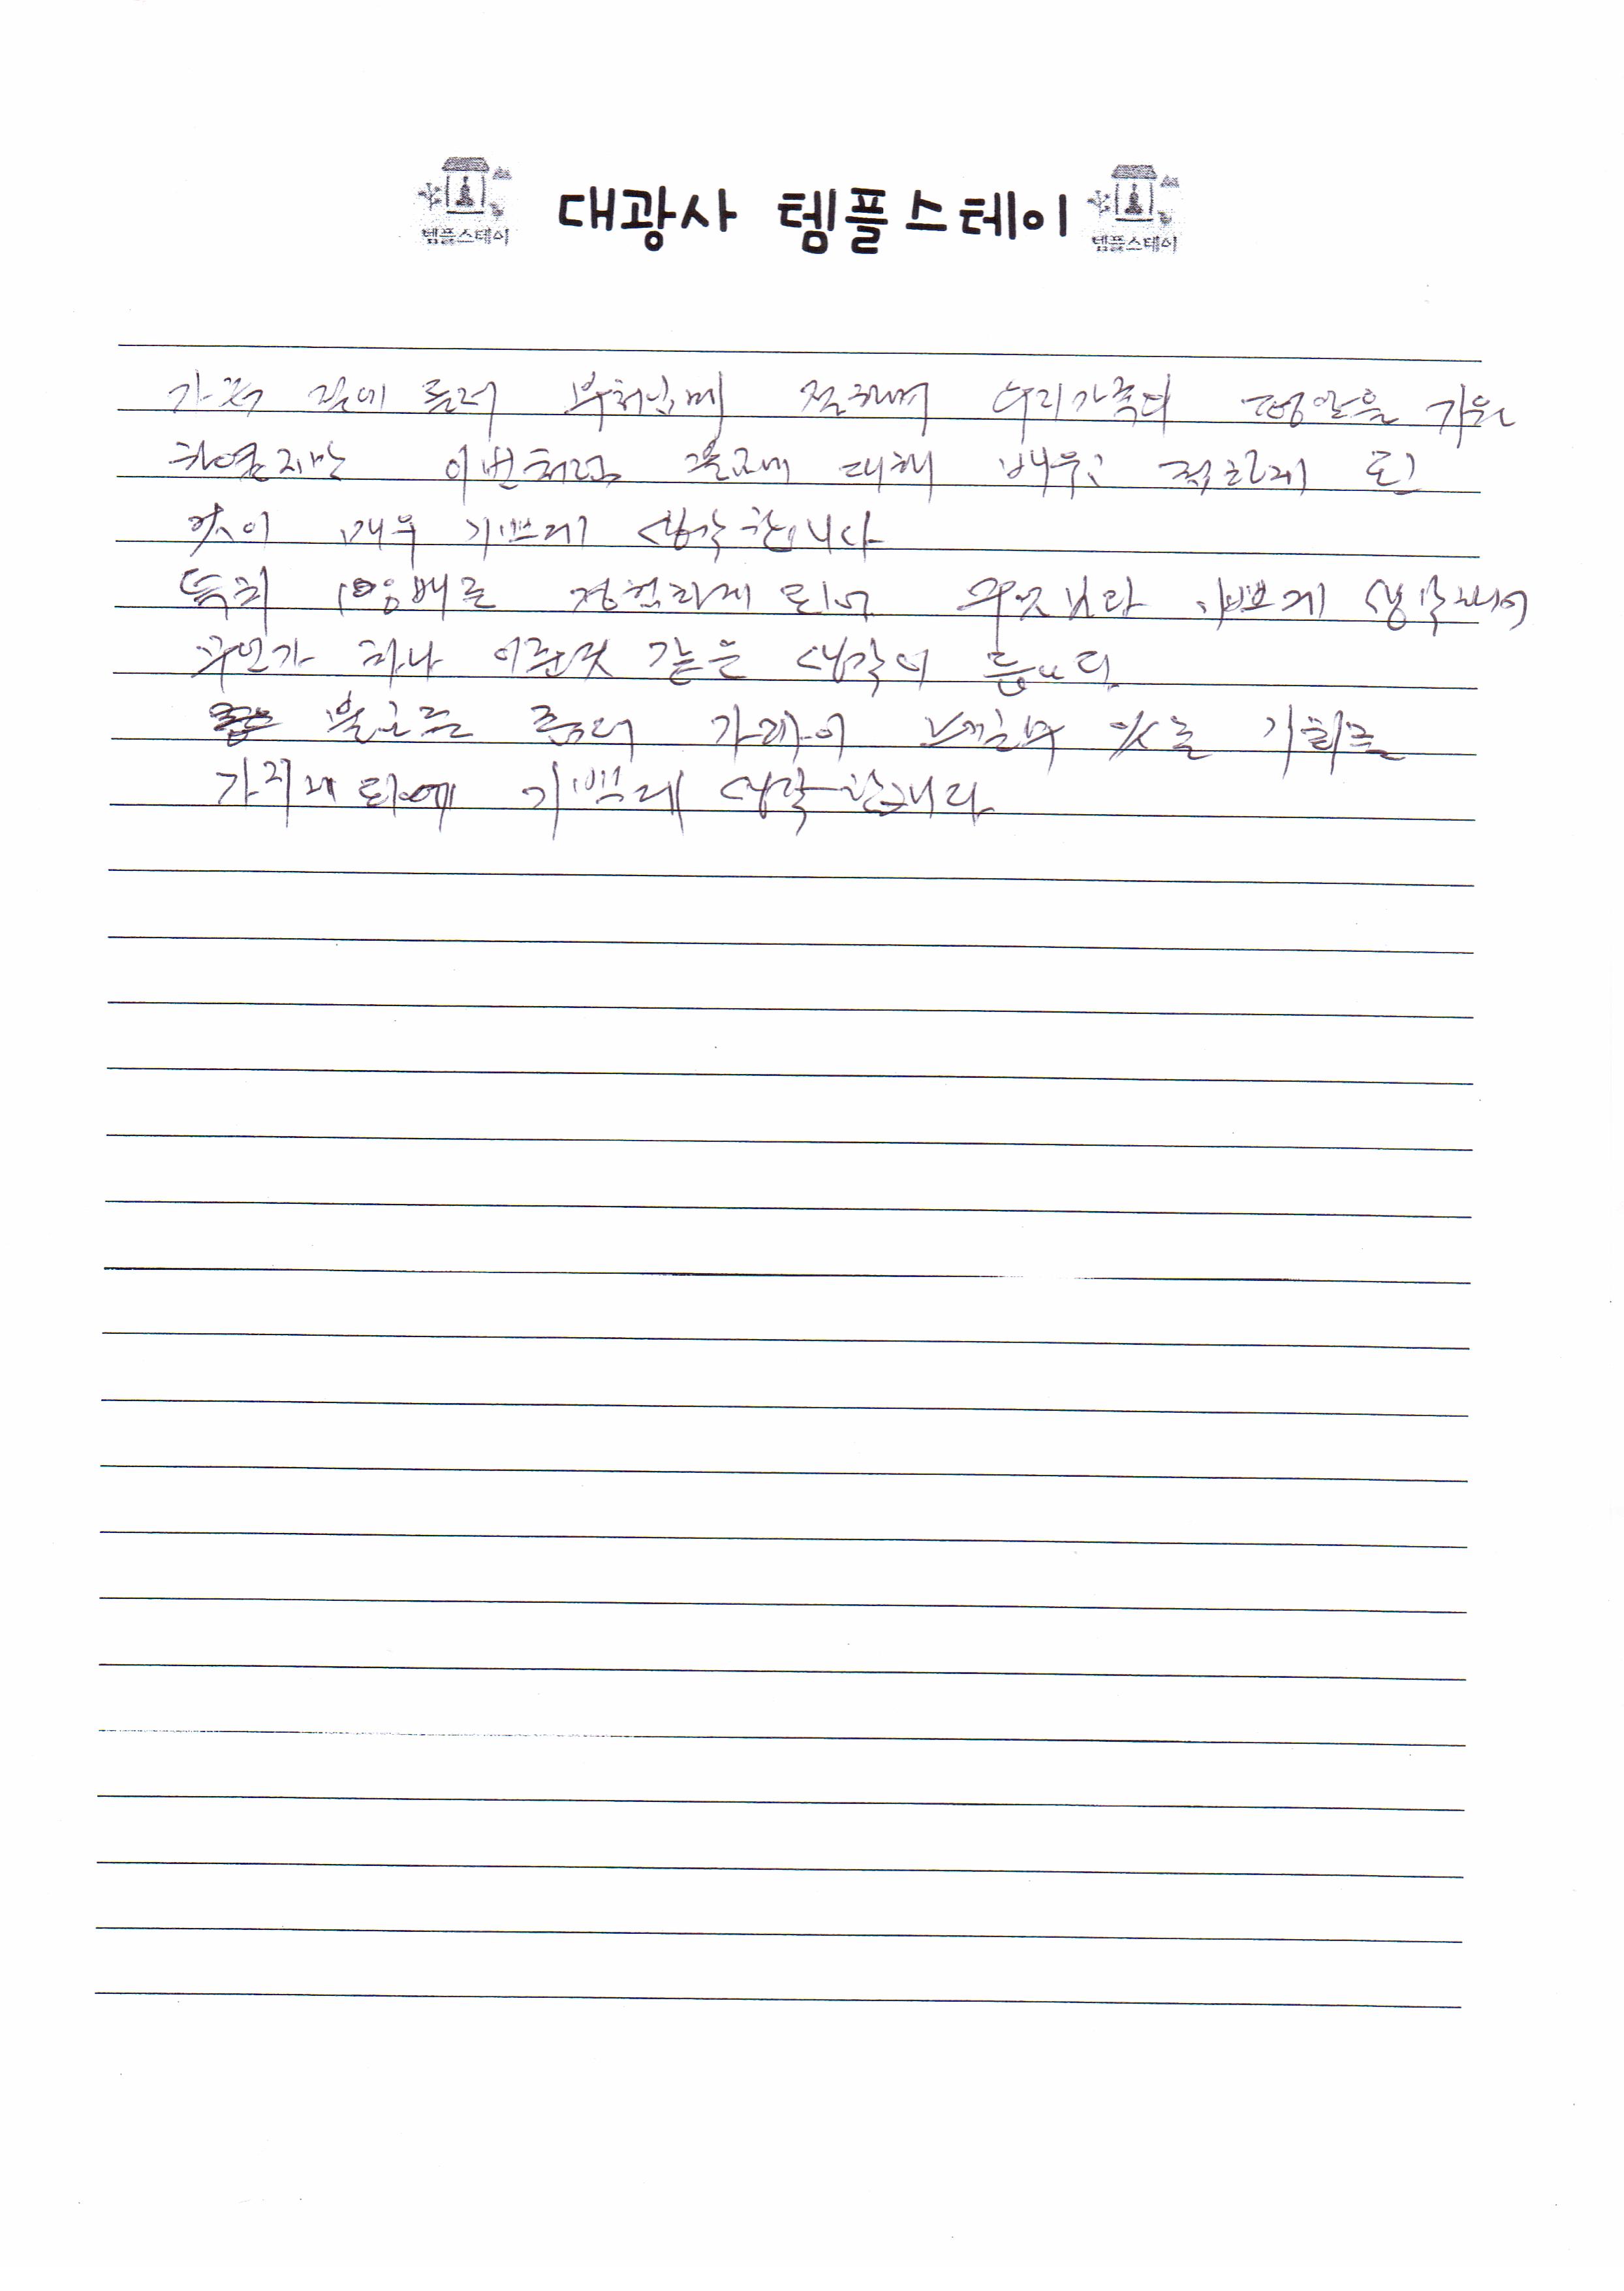 대광사 템플스테이
템플스테이 템플스테이
가끔 절에 들러 부처님께 절하며 우리가족의 평안을 기원
하였지만 이번처럼 불교에 대해 배우고 접하게 된
것이 매우 기쁘게 생각합니다
특히 108배를 경험하게 되어 무엇보다 기쁘게 생각되어
무언가 하나 이룬것 같은 생각이 듭니다.
불교를 좀더 가까이 느낄수 있는 기회를
가지게 되어 기쁘게 생각합니다